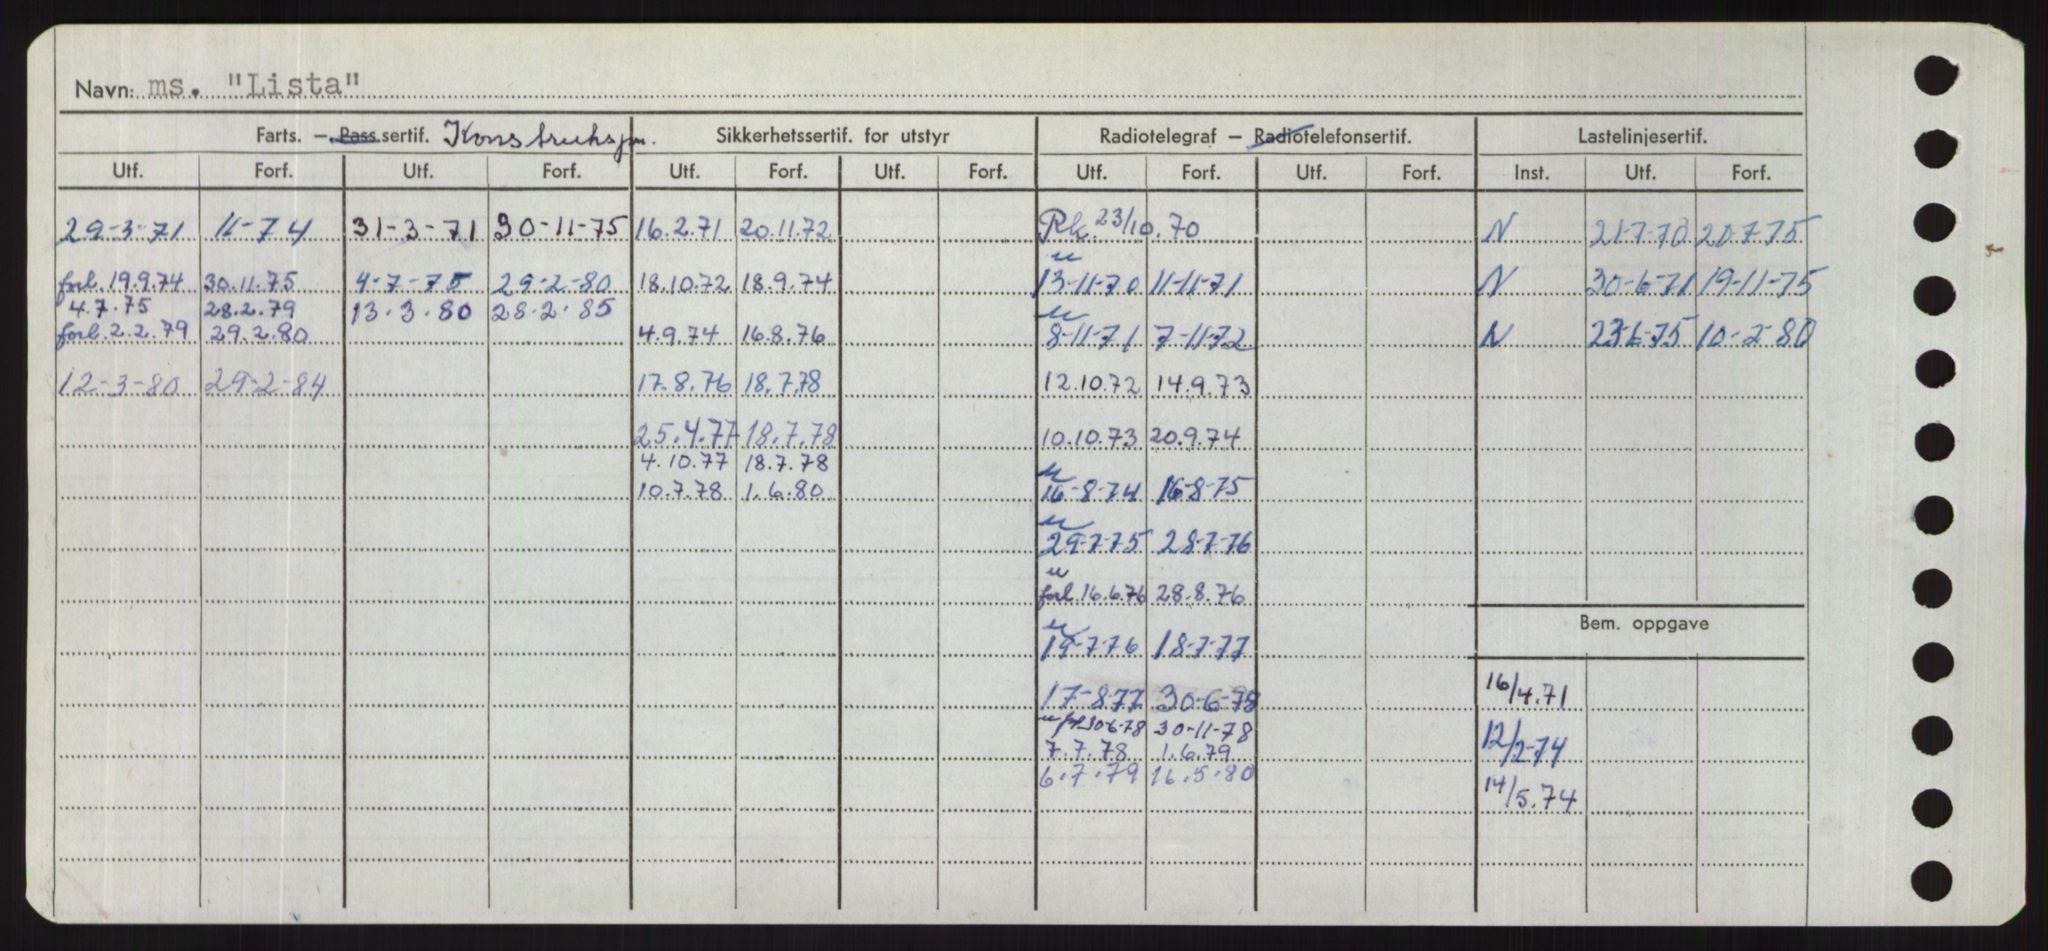 Navn: ms. "Lista"
Farts. — Pass sertif. Konstruksjon. Sikkerhetssertif. for utstyr Radiotelegraf — Radiotelefonsertif. Lastelinjesertif.
Utf. Forf. Utf. Forf. Utf. Forf. Utf. Forf. Utf. Forf. Utf. Forf. Inst. Utf. Forf.
29-3-71 11-74 31-3-71 30-11-75 16.2.71 20.11.72 Rk. 23/10.70 N 21-7-70 20-7-75
forl. 19.9.74 30.11.75 4-7-75 29-2-80 18.10.72 18.9.74 13-11-70 11-11-71 N 30-6-71 19-11-75
4.7.75 28.2.79 13.3.80 28.2.85
forl. 2.2.79 29.2.80 4.9.74 16.8.76 8-11-71 7-11-72 N 23-6-75 10-2-80
12-3-80 29-2-84 17.8.76 18.7.78 12.10.72 14.9.73
25.4.77 18.7.78 10.10.73 20.9.74
4.10.77 18.7.78
10.7.78 1.6.80 16-8-74 16-8-75
29-7-75 28-7-76
forl 16.6.76 28.8.76
Bem. oppgave
19-7-76 18-7-77
17-8-77 30-6-78 16/4.71
forl 30-6-78 30-11-78
7.7.78 1.6.79 12/2-74
6.7.79 16.5.80
14/5.74